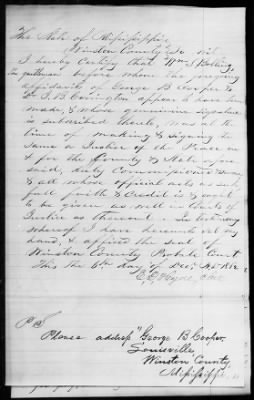 The State of Mississippi
Winston County To wit
I hereby Certify that Wm S Bolling
gentleman before whom the foregoing
affidavits of George B Cooper &
Dr J. B Covington appear to have been
made, & whose genuine signature
is subscribed thereto, was at
the time of making & signing the
same a Justice of the Peace in
& for the County & State afore
said, duly Commissioned & sworn
& all whose official acts as such
full faith & Credit is & ought
to be given as well in Courts of
Justice as thereout. In testimony
whereof I have hereunto set my
hand, & affixed the seal of
Winston County Probate Court
This the 6th day of Dec. AD 1862
Clk
P.S.
Please address George B Cooper,
Louisville,
Winston County,
Mississippi